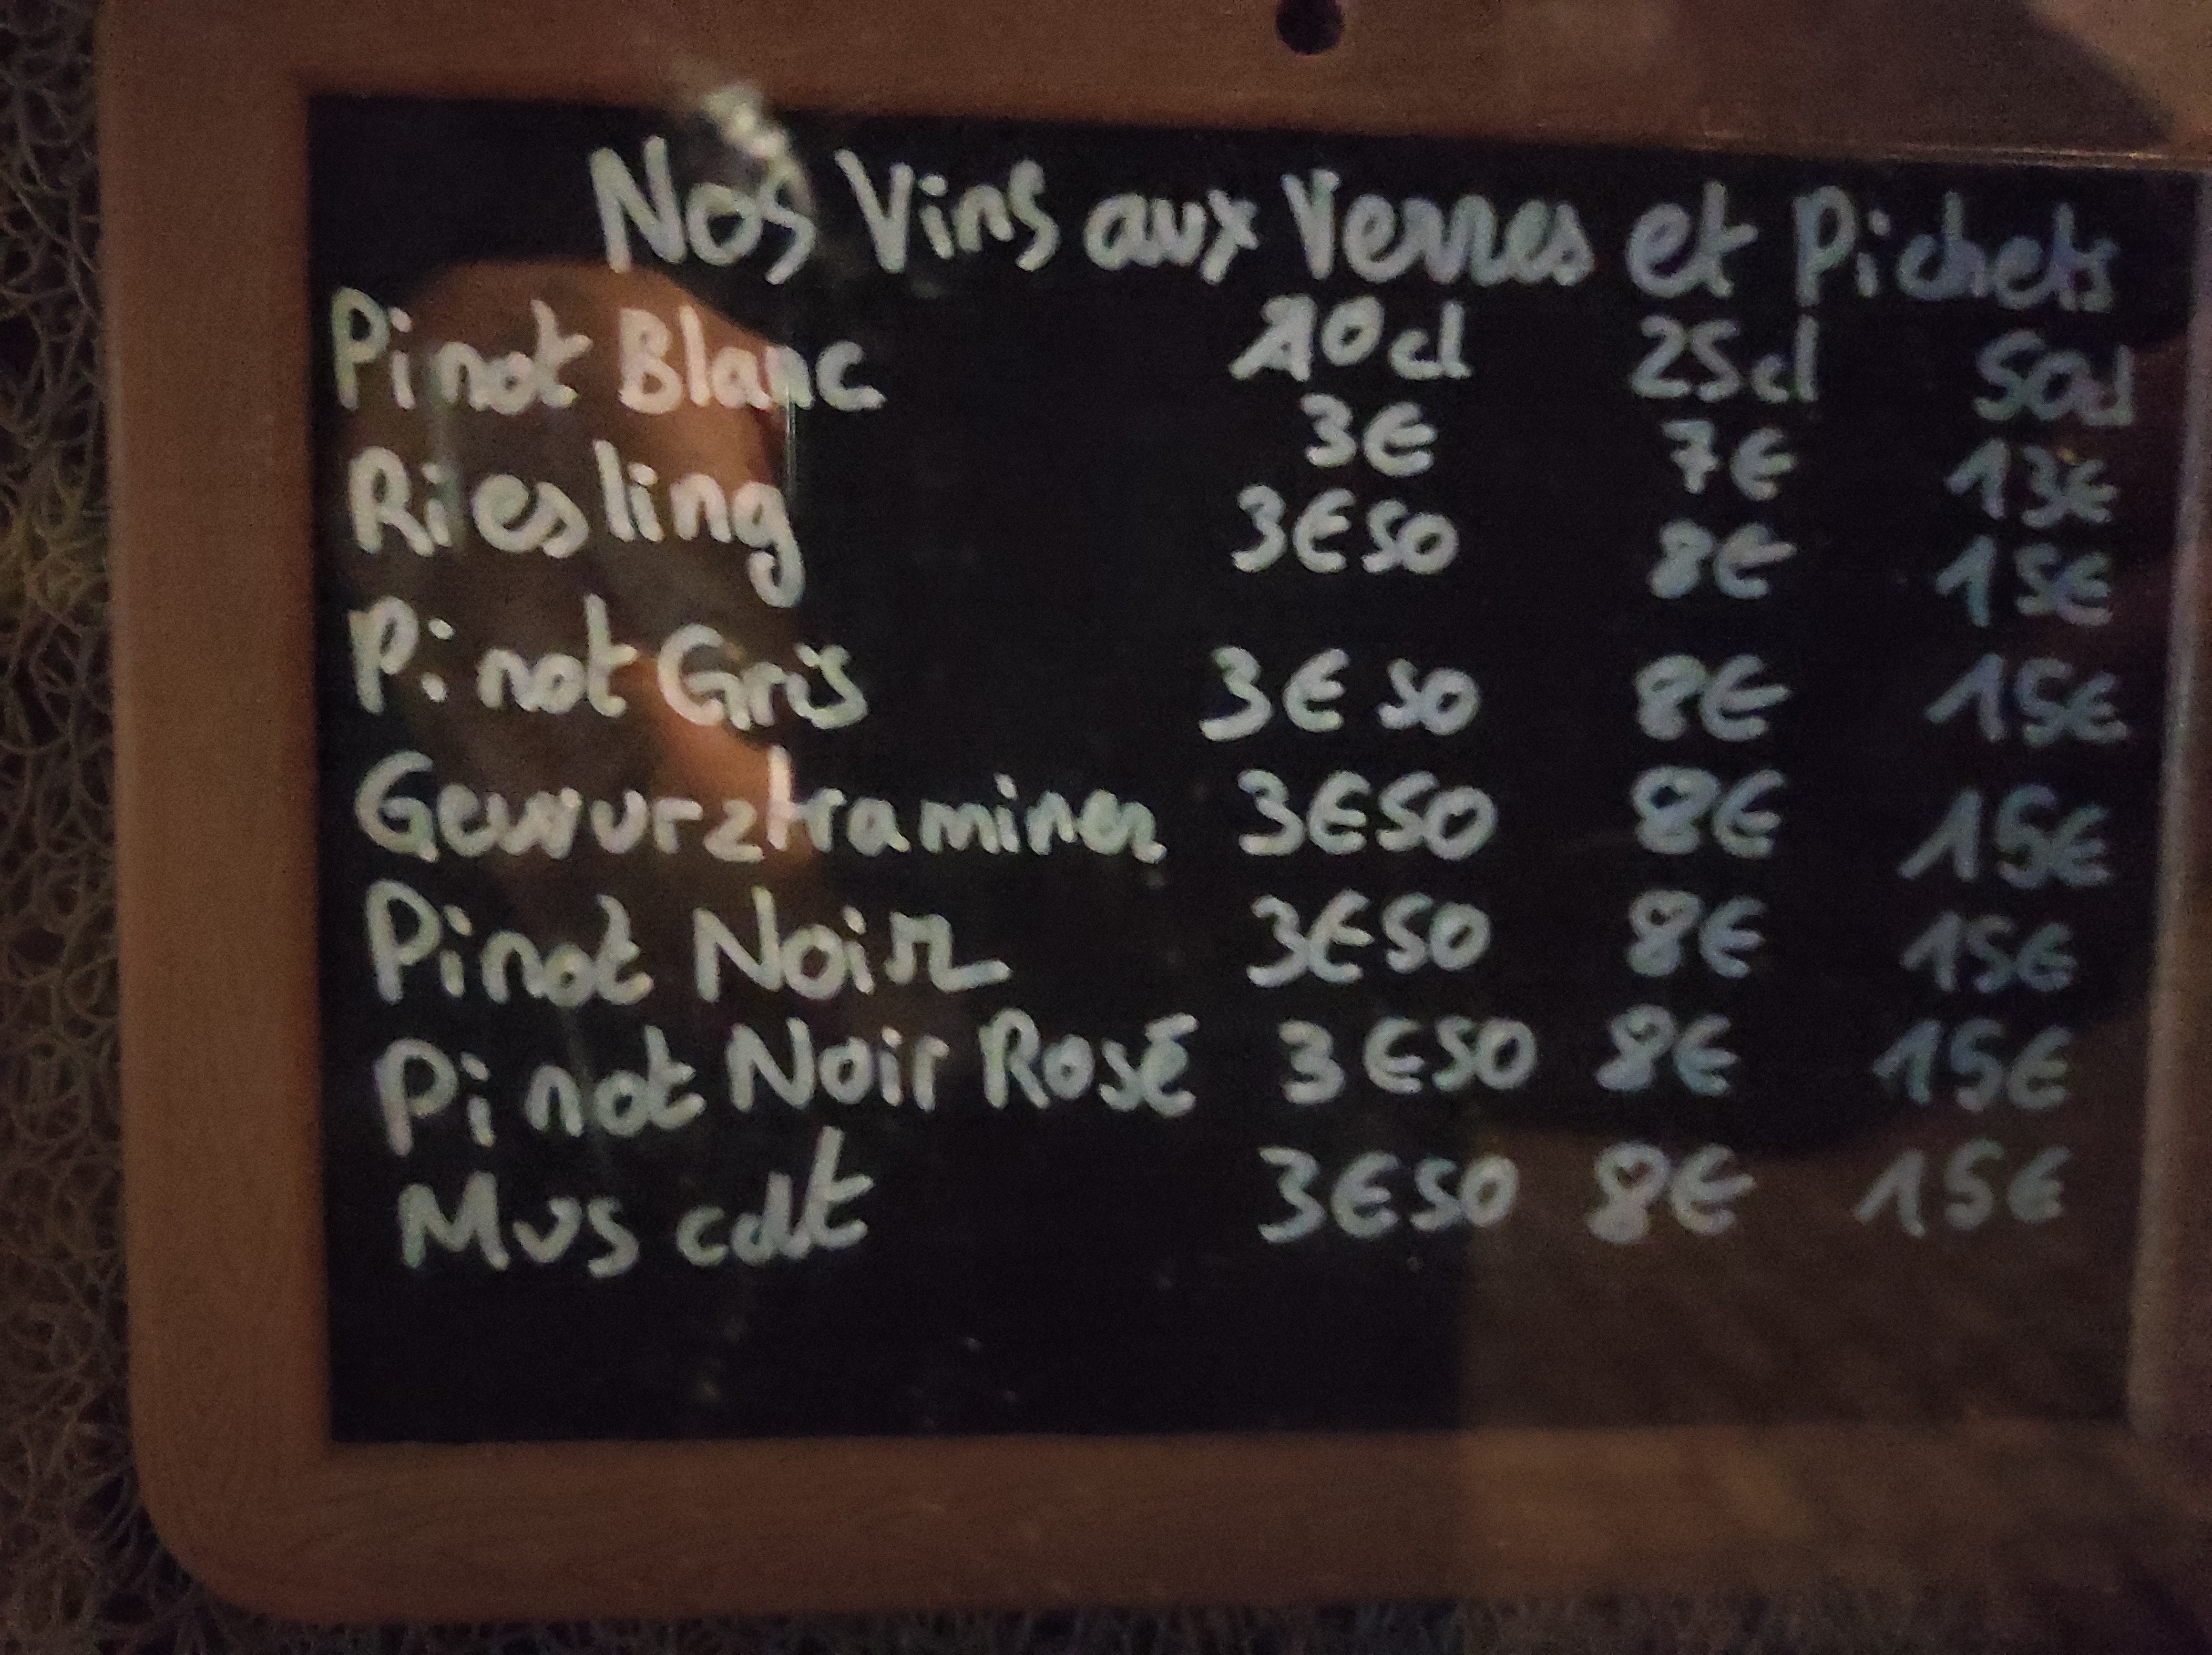 Nos Vins aux Verres et Pichets
Pinot Blanc 10cl 25cl 50cl
3€ 7€ 13€
Riesling 3€50 8€ 15€
Pinot Gris 3€50 8€ 15€
Gewurztraminer 3€50 8€ 15€
Pinot Noir 3€50 8€ 15€
Pinot Noir Rosé 3€50 8€ 15€
Muscat 3€50 8€ 15€